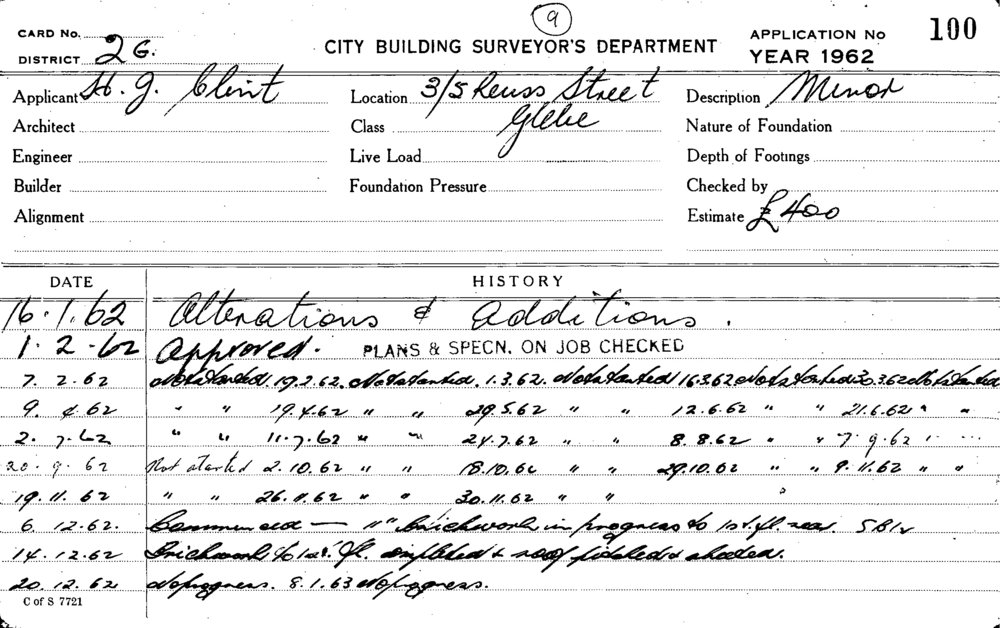 9
CARD No.
DISTRICT 26.
CITY BUILDING SURVEYOR'S DEPARTMENT
APPLICATION No 100
YEAR 1962
Applicant H. J. Clint
Location 3/5 Reuss Street
Glebe
Description Minor
Architect
Class
Nature of Foundation
Engineer
Live Load
Depth of Footings
Builder
Foundation Pressure
Checked by
Alignment
Estimate £400
DATE HISTORY
16.1.62 Alterations & additions.
1.2.62 Approved. PLANS & SPECN. ON JOB CHECKED
7.2.62 Not started. 19.2.62. Not started. 1.3.62. Not started 16.3.62 Not started 30.3.62 Not started
9.4.62 " " 19.4.62 " " 29.5.62 " " 12.6.62 " " 21.6.62 " "
2.7.62 " " 11.7.62 " " 24.7.62 " " 8.8.62 " " 7.9.62 " "
20.9.62 Not started 2.10.62 " " 18.10.62 " " 29.10.62 " " 9.11.62 " "
19.11.62 " " 26.11.62 " " 30.11.62 " "
6.12.62. Commenced — 11" Brickwork in progress to 1st. fl. rear
14.12.62 Brickwork to 1st. fl. completed & roof pitched & sheeted.
20.12.62 No progress. 8.1.63 No progress.
C of S 7721